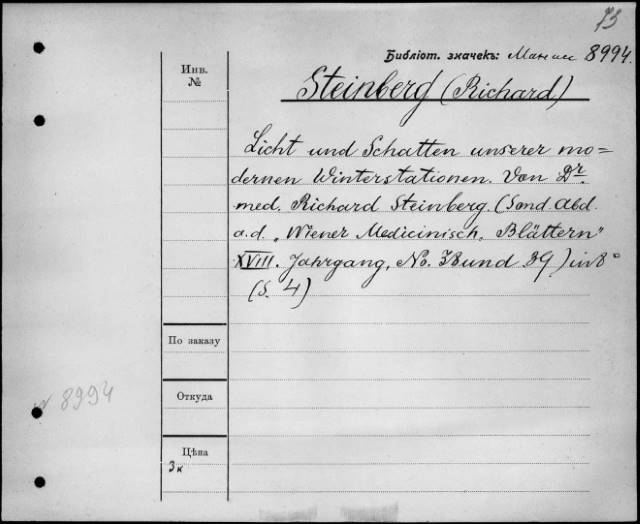 73
Библіот. значекъ: 8994.
Инв.
№
Steinberg (Richard)
Licht und Schatten unserer mo=
dernen Winterstationen. Von Dr.
med. Richard Steinberg. (Sond Abd.
a.d. „Wiener Medicinisch. Blättern"
XVIII. Jahrgang, No. 38 und 39) in 8°
(S. 4)
По заказу
№ 8994
Откуда
Цѣна
3к